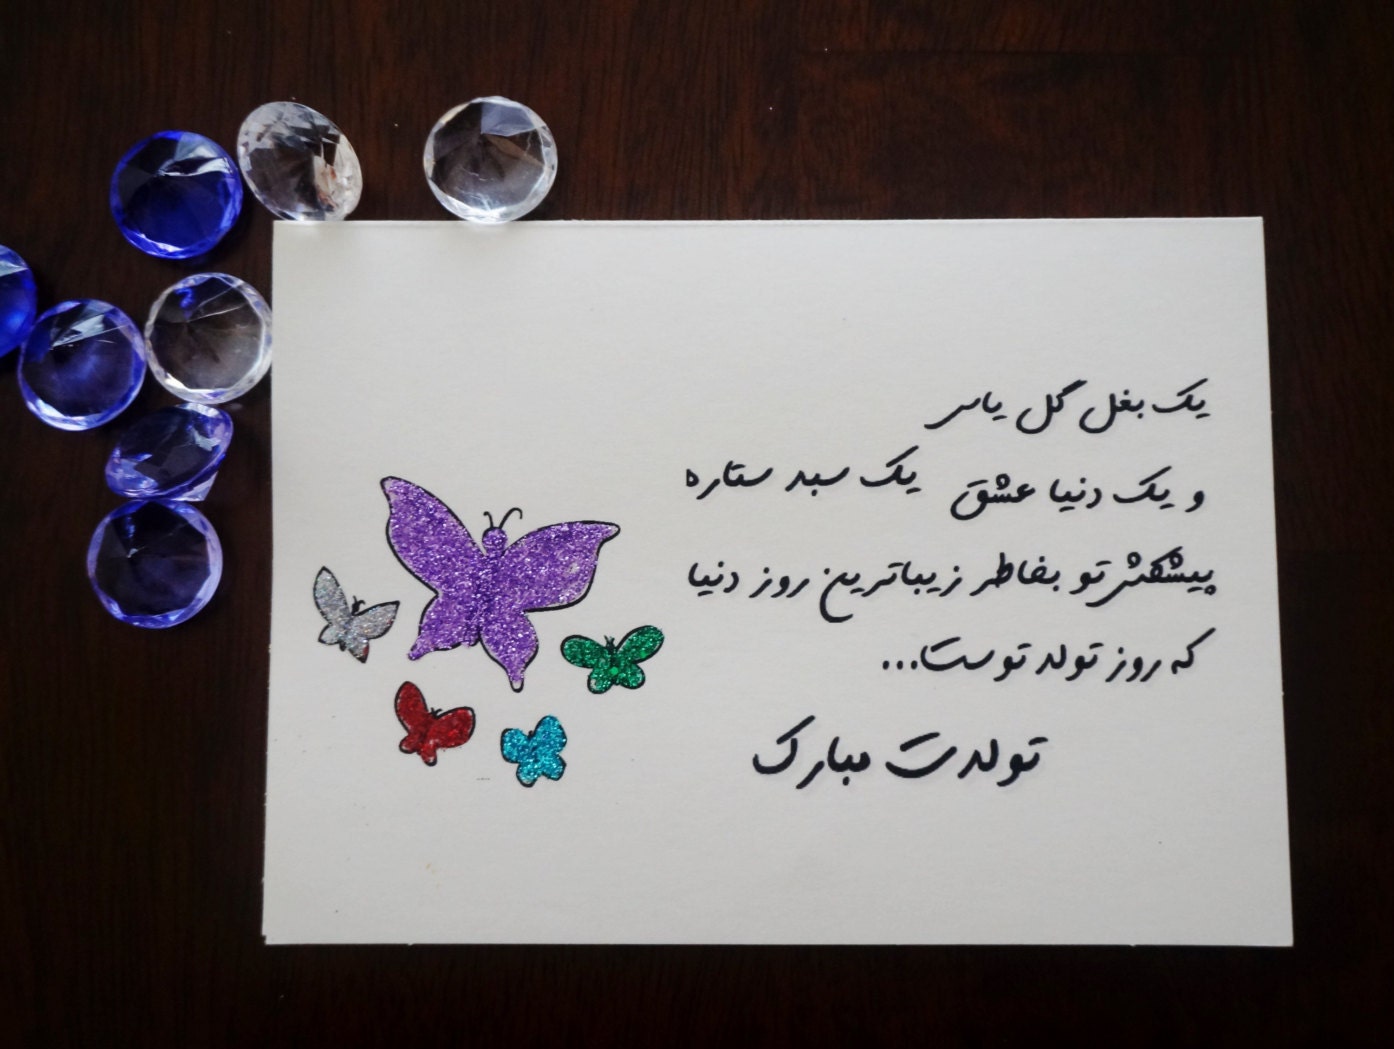 یک بغل گل یاس
و یک دنیا عشق یک سبد ستاره
پیشکش تو بخاطر زیباترین روز دنیا
که روز تولد توست...
تولدت مبارک